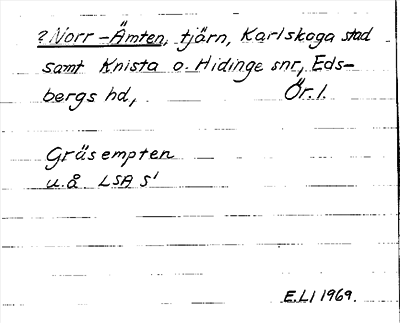 ? Norr-Ämten, tjärn, Karlskoga stad
samt Knista o. Hidinge snr, Eds-
bergs hd, Ör. l.
Gräsempten
u.å LSA S'
E.LI 1969.